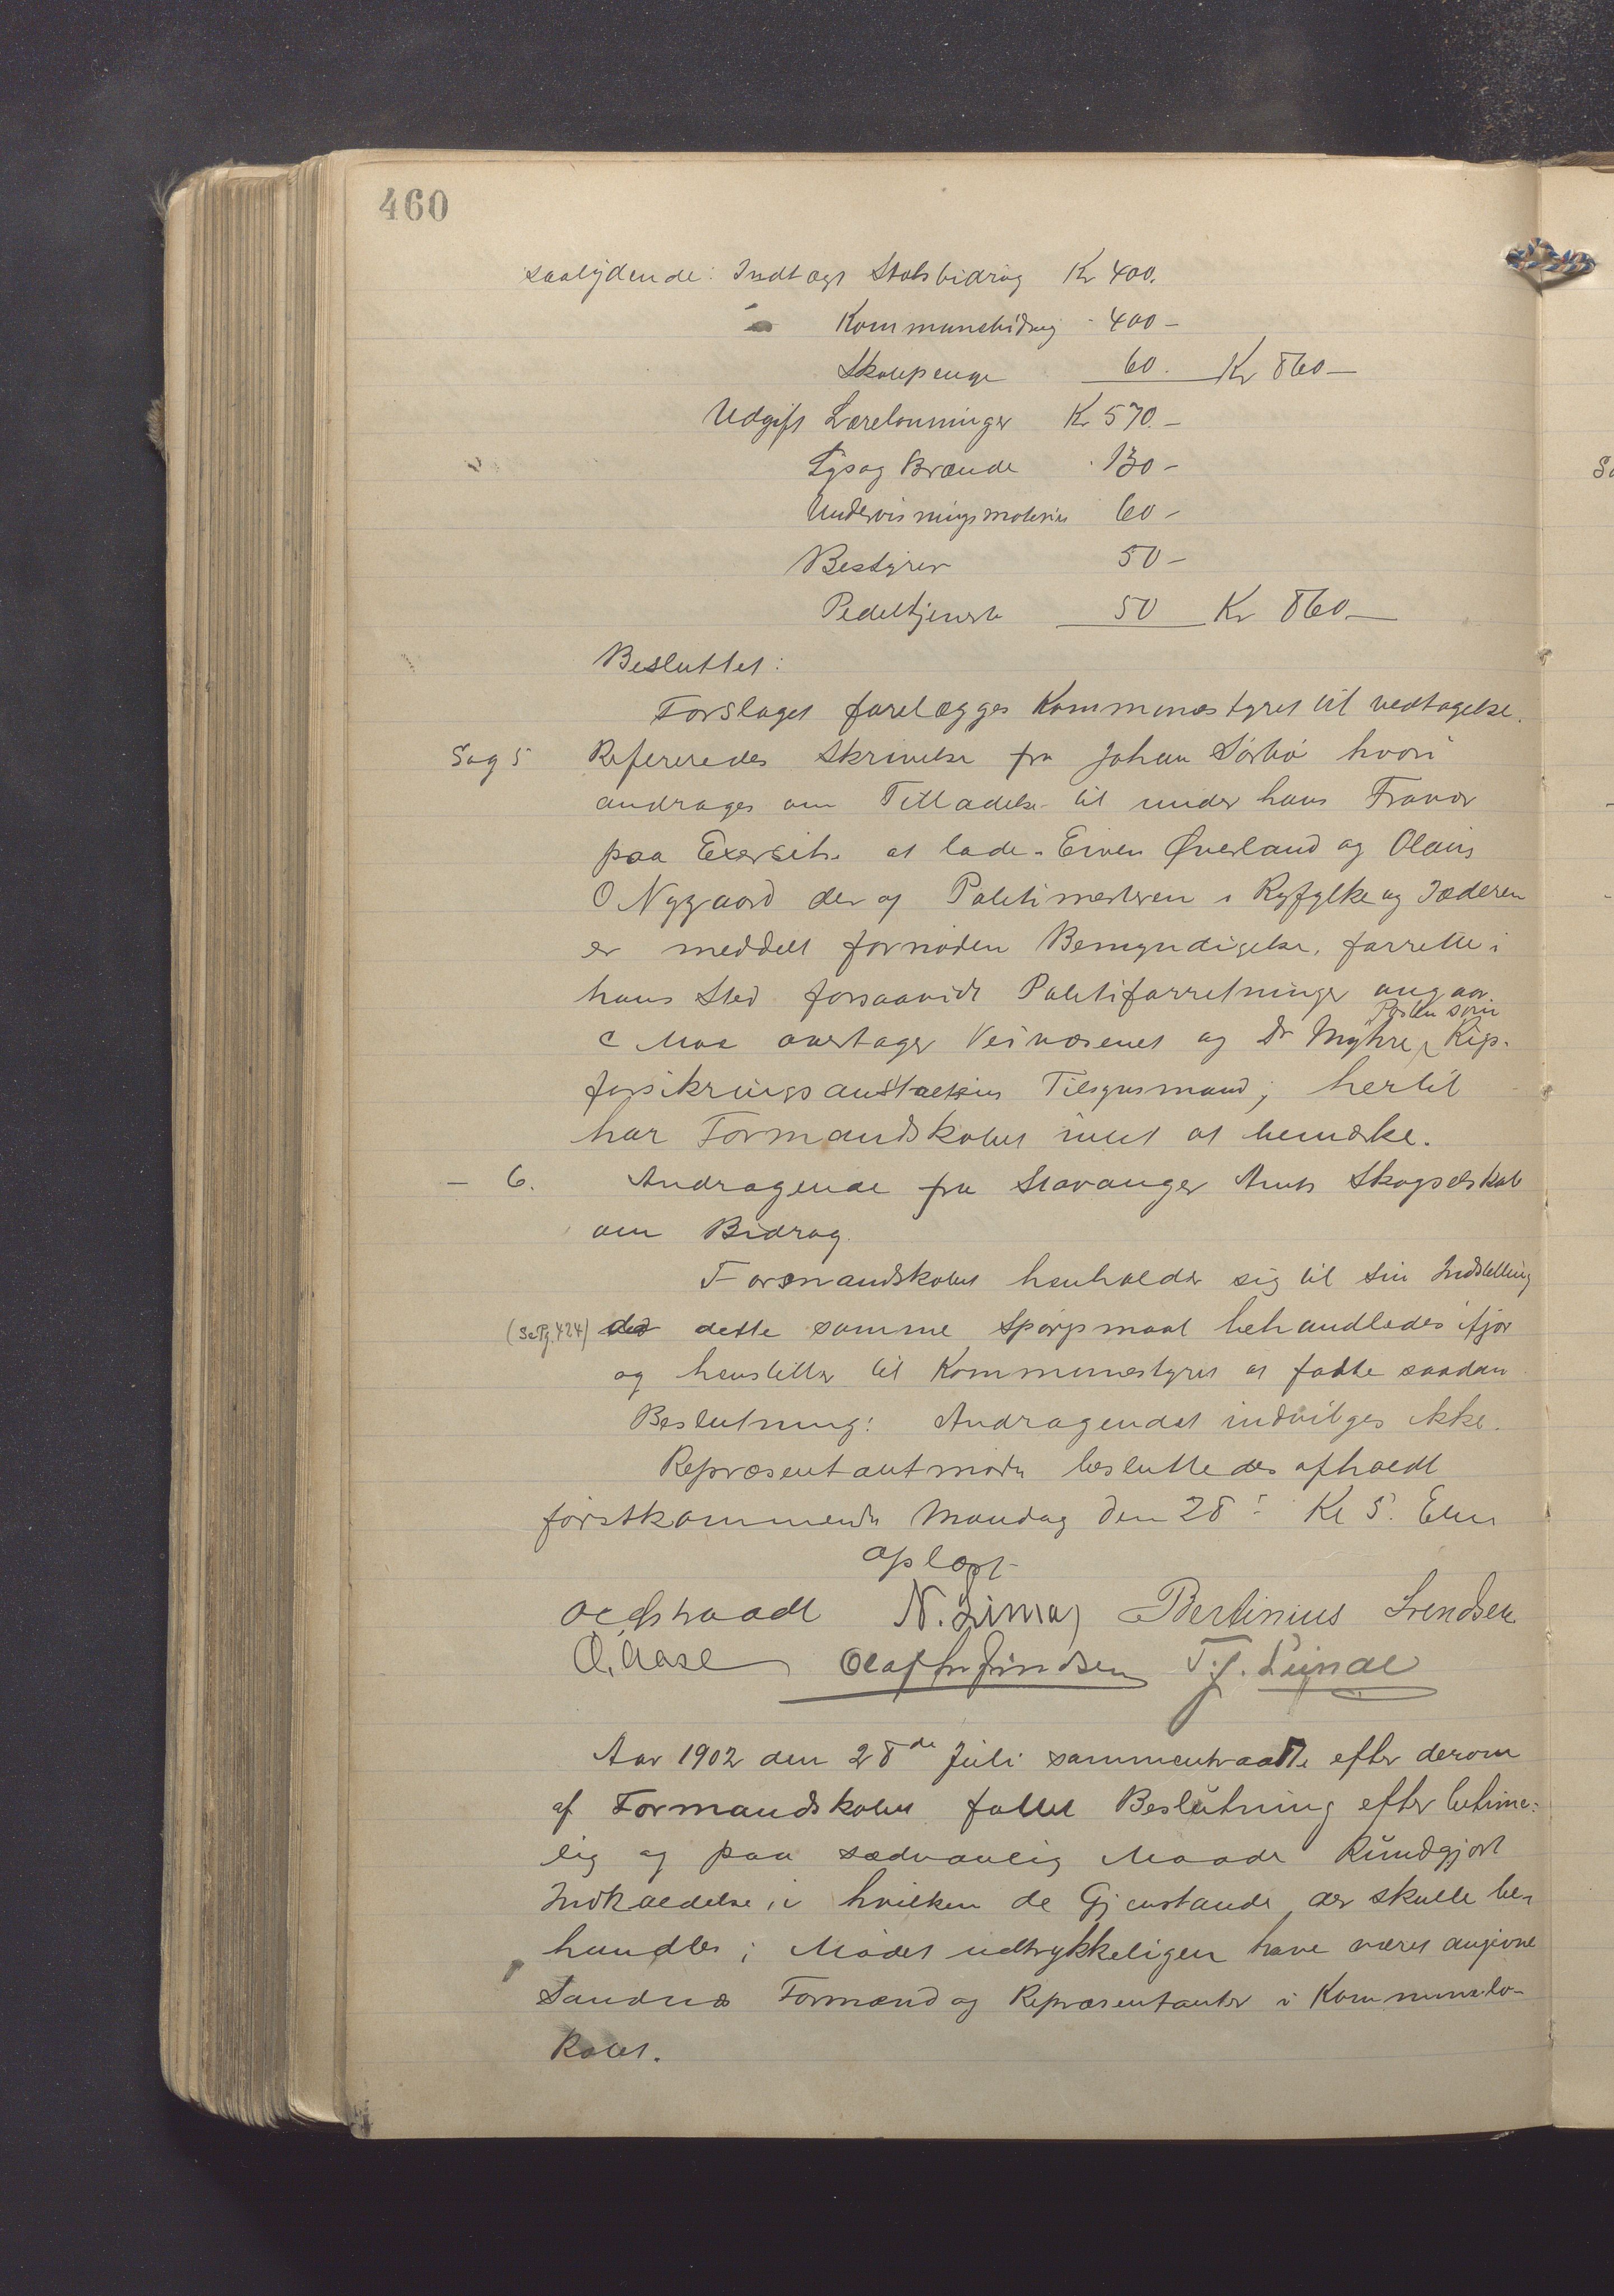 460
saalydende: Indtægt Statsbidrag Kr 400.
Kommunebidrag - 400 -
Skolepenge 60. Kr 860 -
Udgift Lærelønninger Kr 570. -
Lys og Brænde - 130 -
Undervisningsmateriel 60 -
Bestyrer 50 -
Pedeltjeneste 50 Kr 860 -
Besluttet:
Forslaget forelægges Kommunestyret til vedtagelse.
Sag 5 Refereredes Skrivelse fra Johan Sørbø hvori
andrages om Tilladelse til under hans Fravær
paa Exersits at lade Eiven Øverland og Olaus
O Nygaard der af Politimesteren i Ryfylke og Jæderen
er meddelt fornøden Bemyndigelse, forrette i
hans Sted forsaavidt Politiforretninger angaar.
C Moe overtager Veivæsenet og Dr Myhre Posten som Kip.
forsikringsanstaltens Tilsynsmand; hertil
har Formandskabet intet at bemærke.
- 6. Andragende fra Stavanger Amts Skogselskab
om Bidrag.
Formandskabet henholder sig til sin Indstilling
(Se Pg. 424) da dette samme Spørgsmaal behandledes ifjor
og henstiller til Kommunestyret at fatte saadan
Beslutning: Andragendet indvilges ikke.
Repræsentantmøde besluttedes afholdt
førstkommende Mandag den 28: Kl 5. Em
oplæst
N. Lima Bertinius Svendsen
O. Aase T. J. Lunde
Aar 1902 den 28de Juli sammentraadte efter derom
af Formandskabet fattet Beslutning efter betime-
lig og paa sædvanlig Maade Kundgjort
Indkaldelse, i hvilken de Gjenstande der skulle be-
handles i Mødet udtrykkeligen have været angivne
Sandnæs Formænd og Repræsentanter i Kommunelo-
kalet.